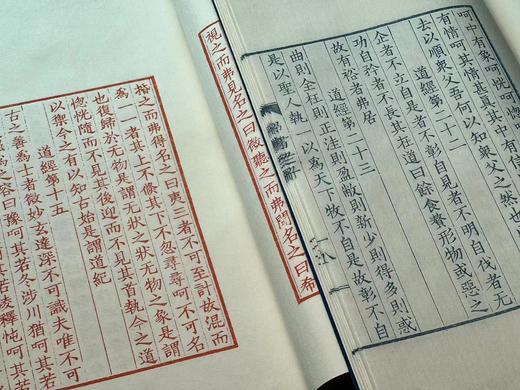 呵中有象呵恍呵
有情呵其情甚真其中有信
去以順衆父吾何以知衆父之然也
道經第二十二
企者不立自是者不彰自見者不明自伐者无
功自矜者不長其在道曰餘食贅形物或惡之
故有裕者弗居
道經第二十三
曲則全枉則正洼則盈敝則新少則得多則惑
是以聖人執一以爲天下牧不自是故彰不自
視之而弗見名之曰微聽之而弗聞名之曰希
捪之而弗得名之曰夷三者不可至計故混而
爲一者其上不倏其下不忽尋尋呵不可名
也復歸於无物是謂无狀之狀无物之象是謂
惚恍隨而不見其後迎而不見其首執今之道
以御今之有以知古始是謂道紀
道經第十五
古之善爲士者微妙玄達深不可識夫唯不可
爲之容曰豫呵其若冬涉川猶呵其若
若凌釋沌呵其若